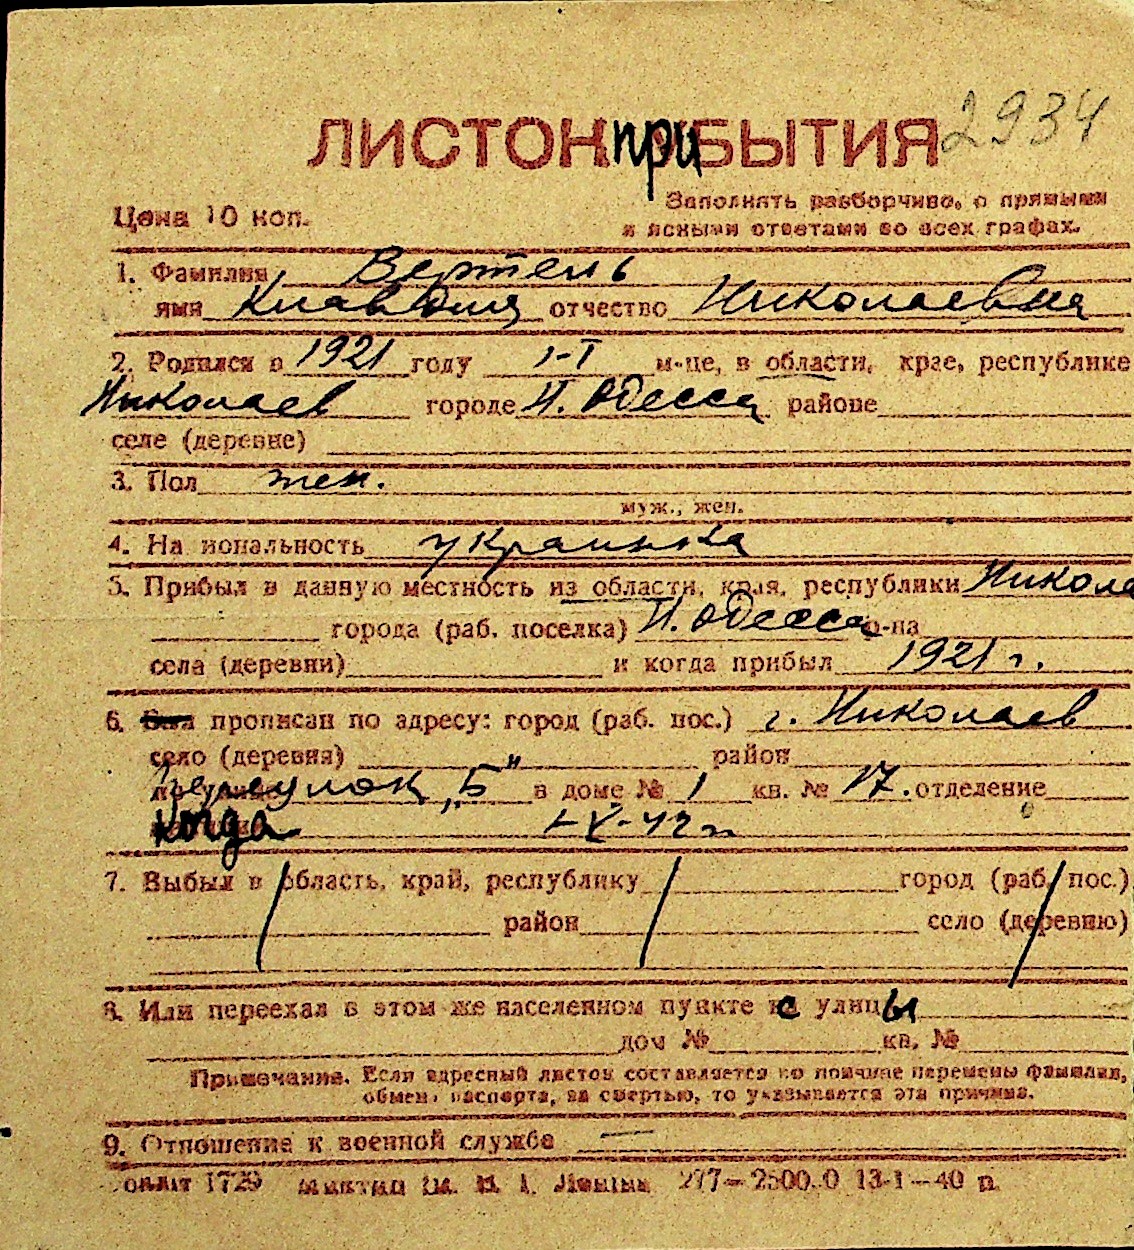 ЛИСТОК при БЫТИЯ 2934
Цена 10 коп.
Заполнять разборчиво, с прямыми
и ясными ответами во всех графах.
1. Фамилия Вертень
имя Клавдия отчество Николаевна
2. Родился в 1921 году 1-I м-це, в области, крае, республике
Николаев городе Н. Одесса районе
селе (деревне)
3. Пол жен.
муж., жен.
4. На иональность украинка
5. Прибыл в данную местность из области, края, республики Никола
города (раб. поселка) Н. Одесса р-на
села (деревни) и когда прибыл 1921 г.
6. прописан по адресу: город (раб. пос.) г. Николаев
село (деревня) район
переулок „Б" в доме № 1 кв. № 17. отделение
когда 1-V-42 г.
7. Выбыл в область, край, республику город (раб. пос.)
район село (деревню)
8. Или переехал в этом же населенном пункте с улицы
дом № кв. №
Примечание. Если адресный листок составляется по причине перемены фамилии,
обмена паспорта, за смертью, то указывается эта причина.
9. Отношение к военной службе —
1729 им. Ленина 277—2500.0 13-1—40 п.